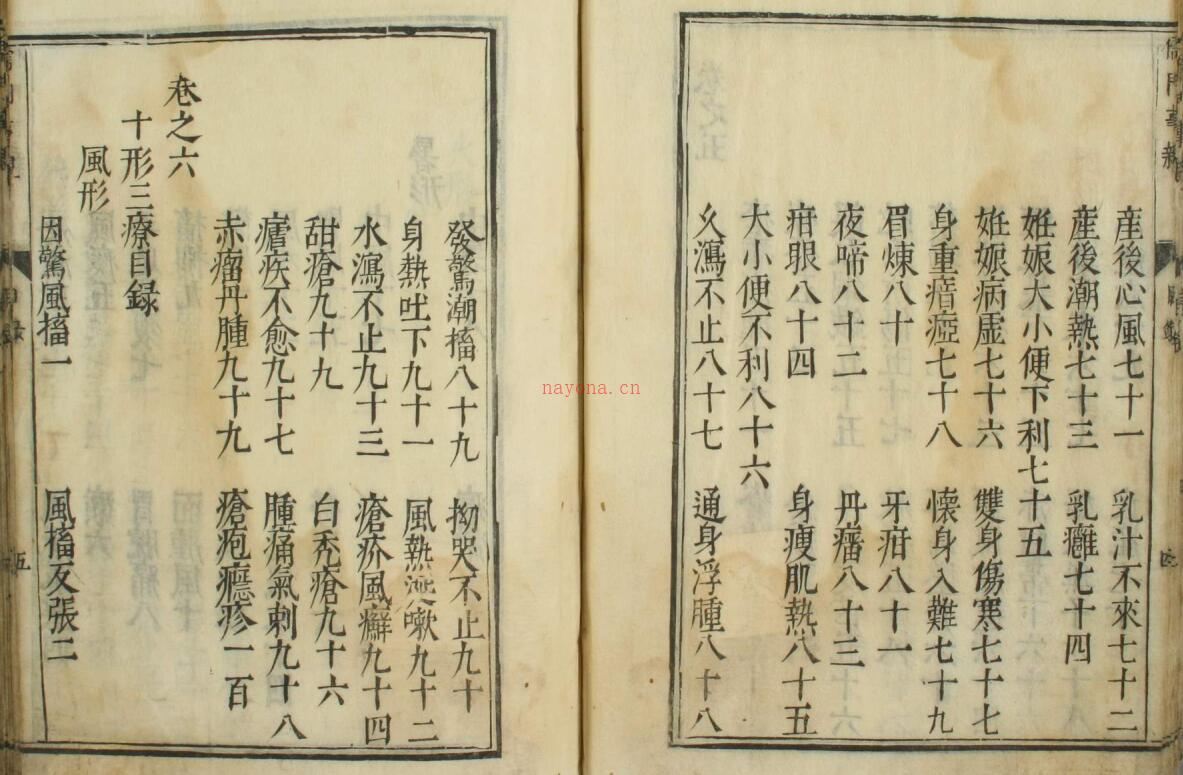 產後心風七十一 乳汁不來七十二
產後潮熱七十三 乳癰七十四
姙娠大小便下利七十五
姙娠病虛七十六 雙身傷寒七十七
身重瘖瘂七十八 懷身入難七十九
眉煉八十 牙疳八十一
夜啼八十二 丹瘤八十三
疳眼八十四 身瘦肌熱八十五
大小便不利八十六
久瀉不止八十七 通身浮腫八十八
發驚潮搐八十九 拗哭不止九十
身熱吐下九十一 風熱涎嗽九十二
水瀉不止九十三 瘡疥風癬九十四
甜瘡九十九 白禿瘡九十六
瘧疾不愈九十七 腫痛氣刺九十八
赤瘤丹腫九十九 瘡疱癮疹一百
卷之六
十形三療目録
風形
因驚風搐一 風搐反張二
nayona.cn